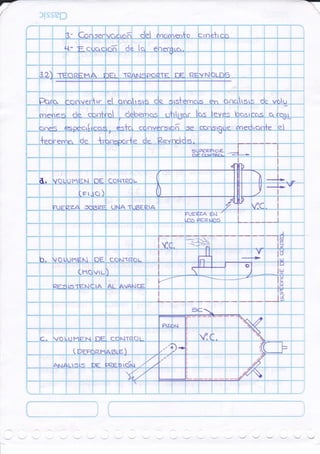 Classic
3- Conservación del momento cinético
4- Ecuación de la energía.
32) TEOREMA DEL TRANSPORTE DE REYNOLDS
Para convertir el analisis de sistemas en analisis de volu
menes de control, debemos utilizar las leyes basicas a regi
ones especificas, esta conversión se consigue mediante el
teorema de transporte de Reynolds.
SUPERFICIE
DE CONTROL
a. VOLUMEN DE CONTROL
(FIJO)
FUERZA SOBRE UNA TUBERIA
V
V.C.
FUERZA EN
LOS PERNOS
V.C.
V
b. VOLUMEN DE CONTROL
(MOVIL)
RESISTENCIA AL AVANCE
SUPERFICIE DE CONTROL
SC
PISTON
V.C.
C. VOLUMEN DE CONTROL
(DEFORMABLE)
ANALISIS DE PRESIÓN